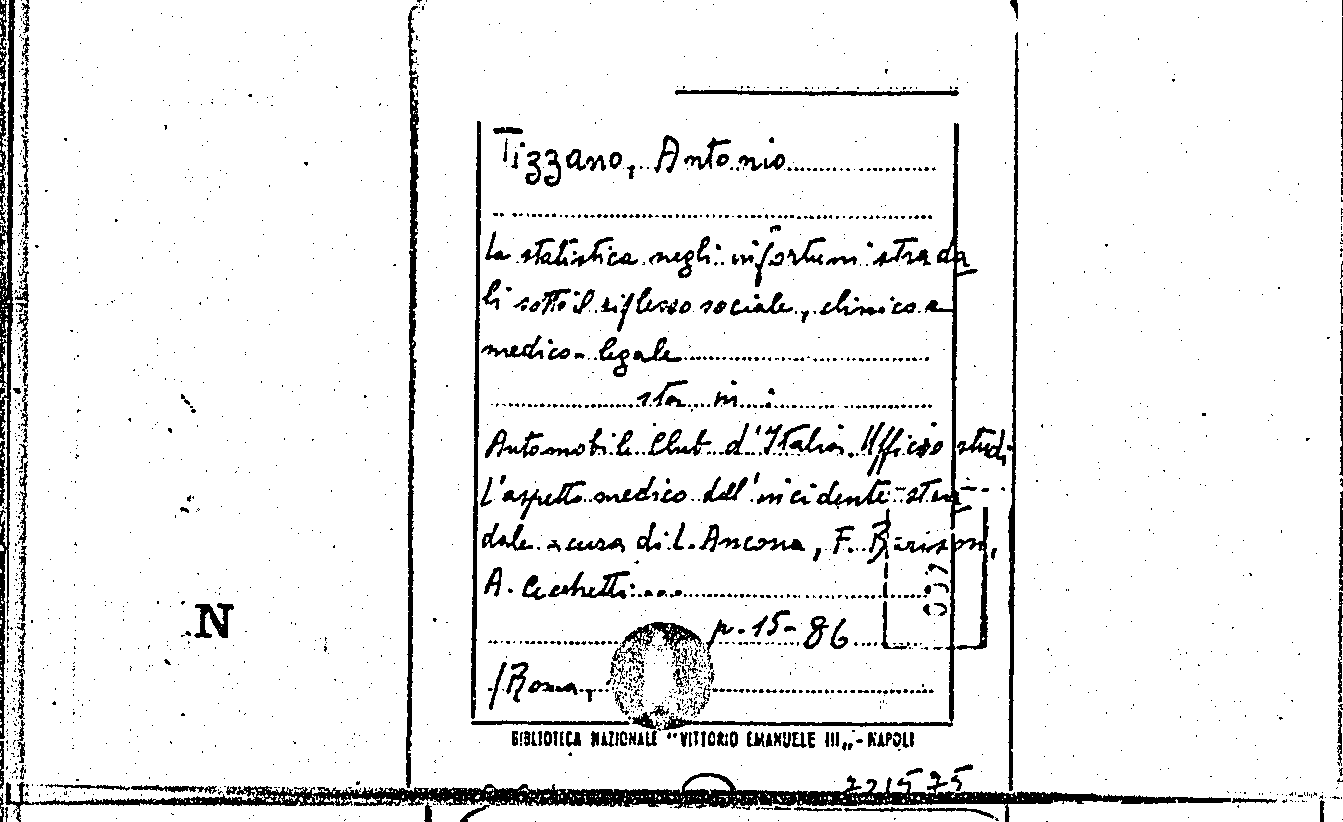 Tizzano, Antonio
La statistica negli infortuni strada
li sotto il riflesso sociale, clinico e
medico-legale
sta in :
Automobile Club d'Italia. Ufficio studi
L'aspetto medico dell'incidente stra
dale a cura di L. Ancona, F. Barison,
A. Cecchetti ...
p. 15-86
N
/Roma,
BIBLIOTECA NAZIONALE "VITTORIO EMANUELE III„ - NAPOLI